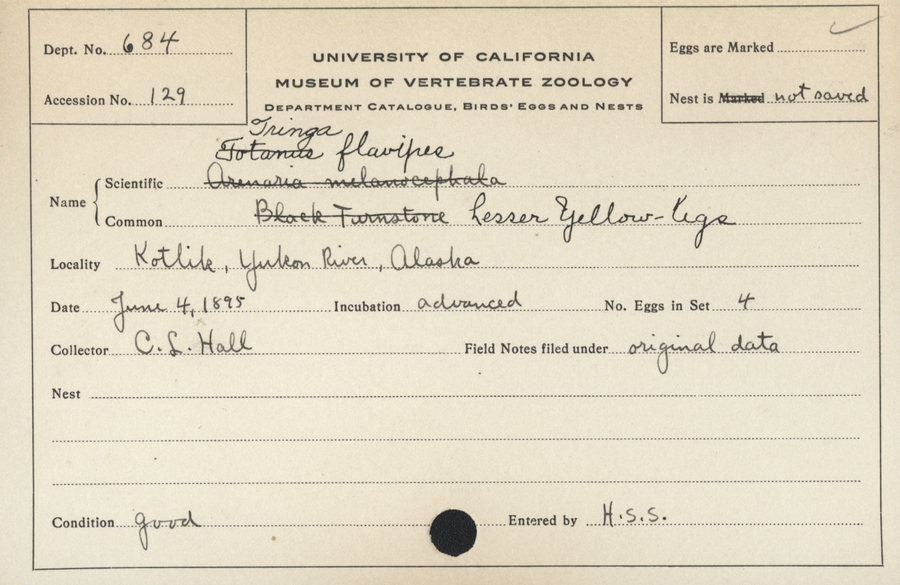 Dept. No. 684
Accession No. 129
UNIVERSITY OF CALIFORNIA
MUSEUM OF VERTEBRATE ZOOLOGY
DEPARTMENT CATALOGUE, BIRDS' EGGS AND NESTS
Eggs are Marked
Nest is Marked not saved
Tringa
Totanus flavipes
Name Scientific Arenaria melanocephala
Common Black Turnstone Lesser Yellow-legs
Locality Kotlik, Yukon River, Alaska
Date June 4, 1895 Incubation advanced No. Eggs in Set 4
Collector C. L. Hall Field Notes filed under original data
Nest
Condition good Entered by H.S.S.